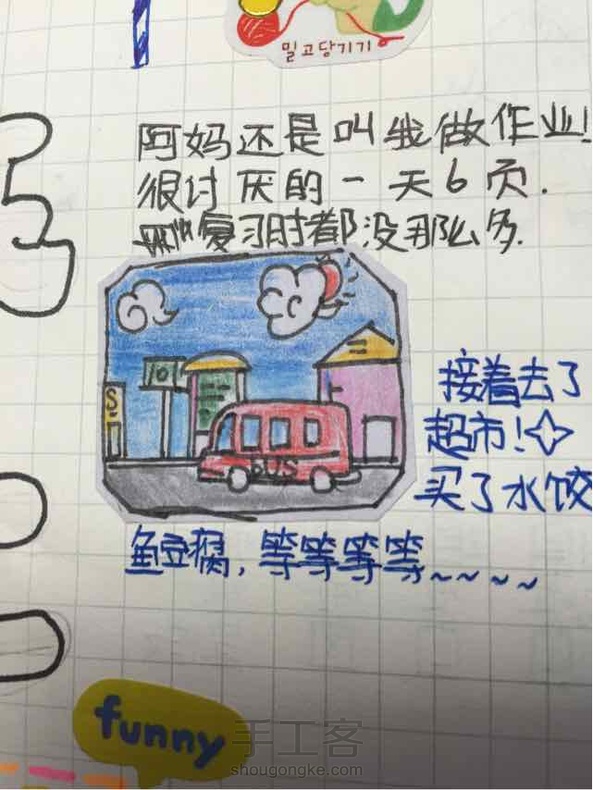 밀고당기기
阿妈还是叫我做作业!
很讨厌的一天6页.
复习时都没那么多.
S
BUS
接着去了
超市!
买了水饺
鱼豆腐，等等等等~~~~
funny
手工客
shougongke.com